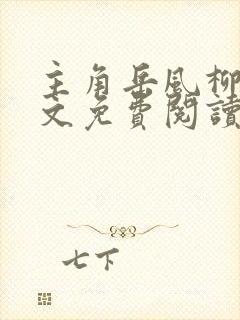 主角岳风柳
文免費閱讀
七下